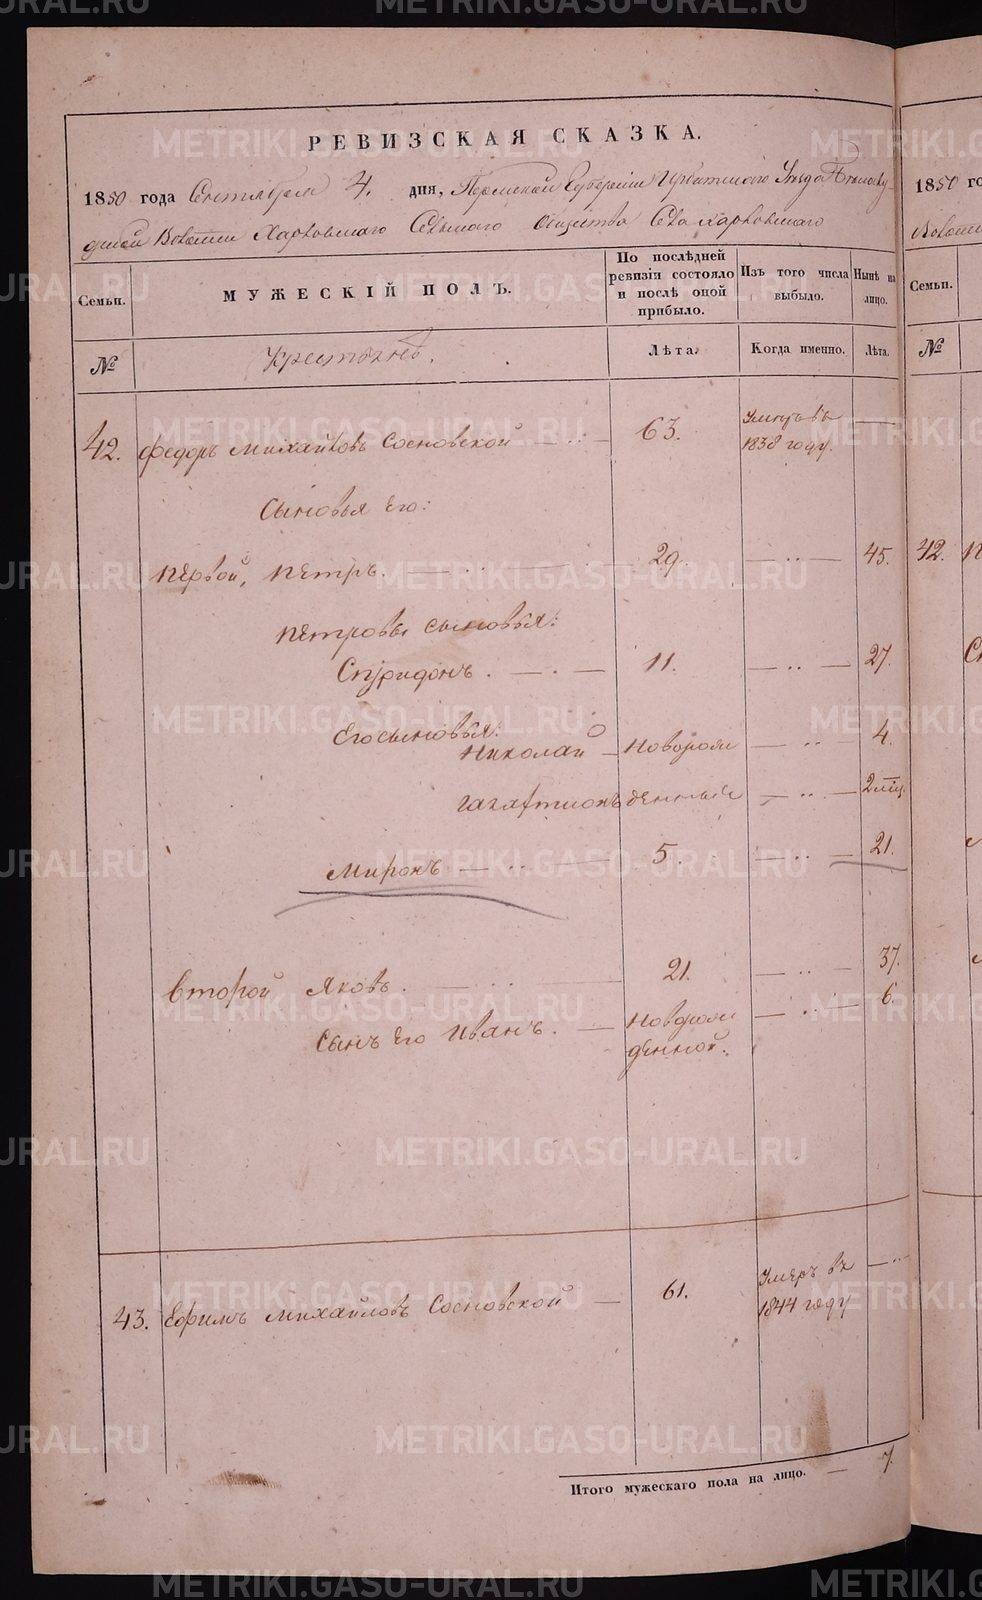 РЕВИЗСКАЯ СКАЗКА.
1850 года Сентября 4. дня, Пермской Губернии Ирбитского Уезда
Волости Харловского Сельского Общества Села Харловского
Семьи.
МУЖЕСКІЙ ПОЛЪ.
По послѣдней ревизіи состояло и послѣ оной прибыло.
Изъ того числа выбыло.
Нынѣ на лицо.
№
Крестьянѣ.
Лѣта.
Когда именно.
Лѣта.
42. Федоръ Михайловъ Сосновской — 63. Умеръ въ 1838 году. —
Сыновья Его:
Первой, Петръ. — 29. — 45.
Петровы сыновья:
Спиридонъ. — 11. — 27.
Его сыновья:
Николай — Новорож — 4.
денный — 2 мѣс.
Миронъ — 5. — 21.
Второй Яковъ. — 21. — 37.
Сынъ Его Иванъ. — Новорож — 6.
денной.
43. Ефимъ Михайловъ Сосновской — 61. Умеръ въ 1844 году —
Итого мужескаго пола на лицо. — 7.
1850 го
Волости
Семьи.
№
42. П
METRIKI.GASO-URAL.RU